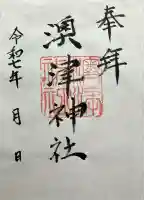 奉拝
澳津神社
令和七年 月 日